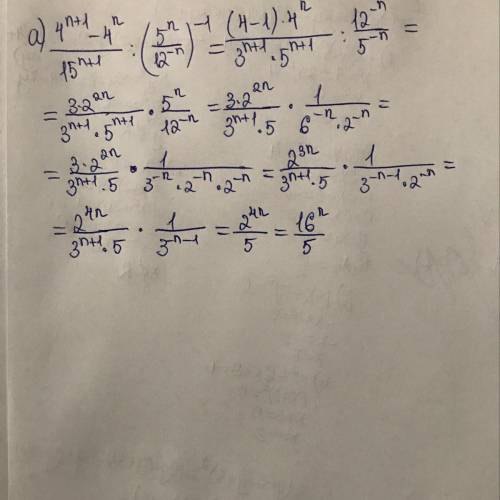 а) \frac{4^{n+1}-4^n}{15^{n+1}} : \left(\frac{5^n}{12^{-n}}\right)^{-1} = \frac{(4-1)\cdot 4^n}{3^{n+1}\cdot 5^{n+1}} : \frac{12^{-n}}{5^{-n}} =
= \frac{3\cdot 2^{2n}}{3^{n+1}\cdot 5^{n+1}} \cdot \frac{5^n}{12^{-n}} = \frac{3\cdot 2^{2n}}{3^{n+1}\cdot 5} \cdot \frac{1}{6^{-n}\cdot 2^{-n}} =
= \frac{3\cdot 2^{2n}}{3^{n+1}\cdot 5} \cdot \frac{1}{3^{-n}\cdot 2^{-n}\cdot 2^{-n}} = \frac{2^{3n}}{3^{n+1}\cdot 5} \cdot \frac{1}{3^{-n-1}\cdot 2^{-n}} =
= \frac{2^{4n}}{3^{n+1}\cdot 5} \cdot \frac{1}{3^{-n-1}} = \frac{2^{4n}}{5} = \frac{16^n}{5}